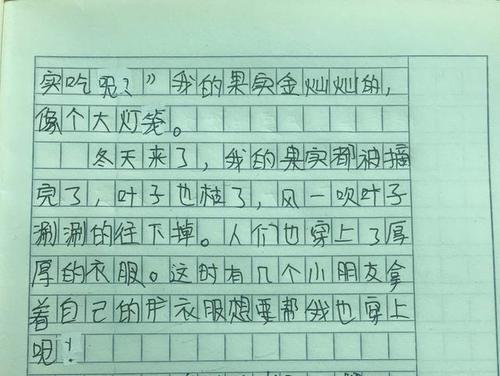 实吃呢？”我的果实金灿灿的，
像个大灯笼。
冬天来了，我的果实都被摘
完了，叶子也枯了，风一吹叶子
涮涮的往下掉。人们也穿上了厚
厚的衣服。这时有几个小朋友拿
着自己的衣服想要帮我也穿上
呢！